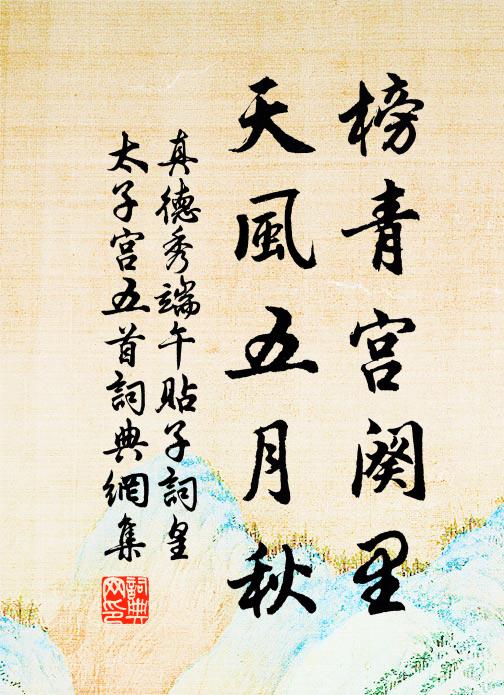 榜青宫阕里
天風五月秋
真德秀端午貼子詞皇
太子宫五首詞典網集
詞典網印